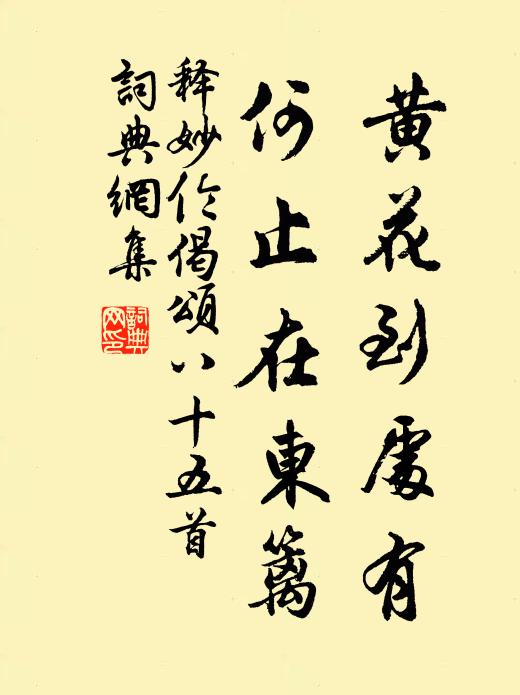 黄花到處有
何止在東籬
释妙伦偈頌八十五首
詞典網集
詞典網印